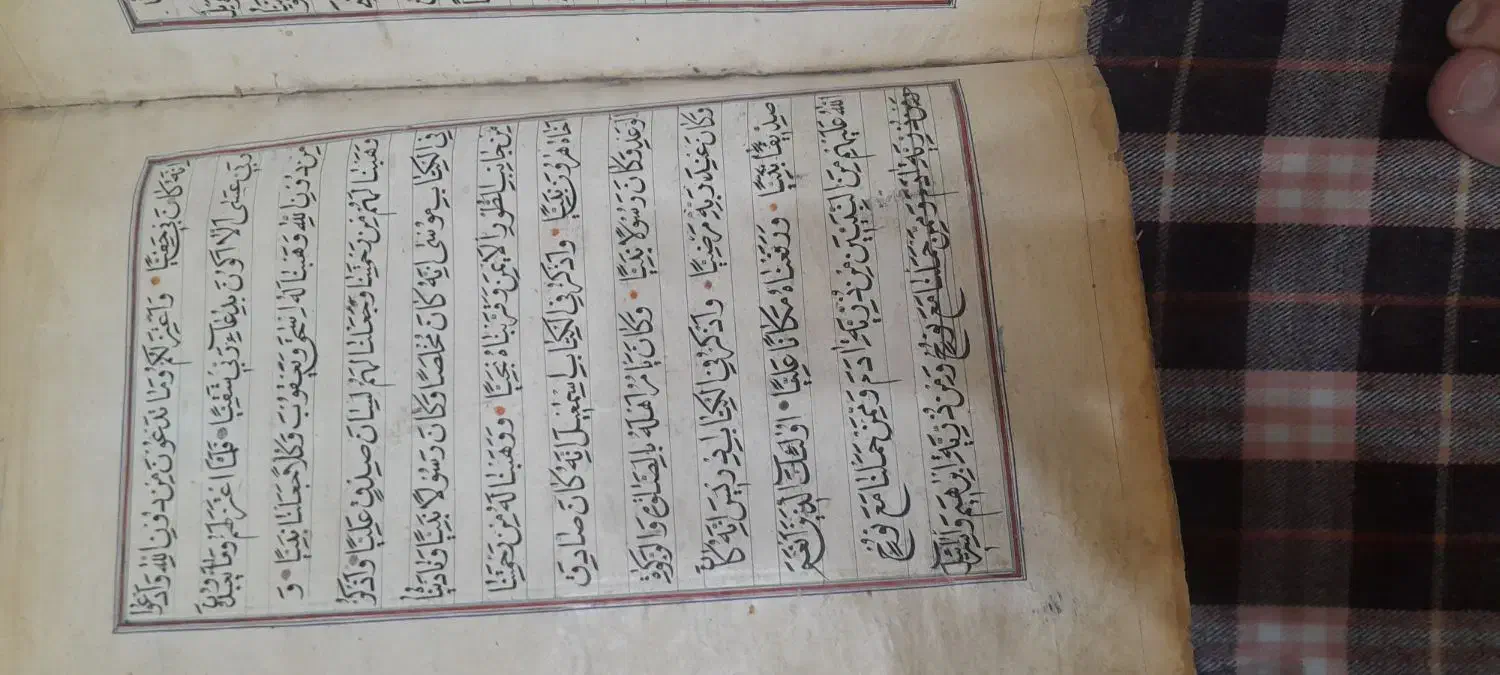 اِنَّهُ كَانَ بِي حَفِيًّا • وَاَعْتَزِلُكُمْ وَمَا تَدْعُونَ مِنْ دُونِ اللّٰهِ وَاَدْعُوا
رَبِّي عَسٰى اَلَّا اَكُونَ بِدُعَاءِ رَبِّي شَقِيًّا • فَلَمَّا اعْتَزَلَهُمْ وَمَا يَعْبُدُونَ
مِنْ دُونِ اللّٰهِ وَهَبْنَا لَهُ اِسْحٰقَ وَيَعْقُوبَ وَكُلًّا جَعَلْنَا نَبِيًّا • وَ
وَهَبْنَا لَهُمْ مِنْ رَحْمَتِنَا وَجَعَلْنَا لَهُمْ لِسَانَ صِدْقٍ عَلِيًّا • وَاذْكُرْ
فِي الْكِتَابِ مُوسٰى اِنَّهُ كَانَ مُخْلَصًا وَكَانَ رَسُولًا نَبِيًّا وَنَادَيْنَاهُ
مِنْ جَانِبِ الطُّورِ الْاَيْمَنِ وَقَرَّبْنَاهُ نَجِيًّا • وَوَهَبْنَا لَهُ مِنْ رَحْمَتِنَا
اَخَاهُ هٰرُونَ نَبِيًّا • وَاذْكُرْ فِي الْكِتَابِ اِسْمٰعِيلَ اِنَّهُ كَانَ صَادِقَ
الْوَعْدِ وَكَانَ رَسُولًا نَبِيًّا • وَكَانَ يَاْمُرُ اَهْلَهُ بِالصَّلٰوةِ وَالزَّكٰوةِ
وَكَانَ عِنْدَ رَبِّهِ مَرْضِيًّا • وَاذْكُرْ فِي الْكِتَابِ اِدْرِيسَ اِنَّهُ كَانَ
صِدِّيقًا نَبِيًّا • وَرَفَعْنَاهُ مَكَانًا عَلِيًّا • اُولٰئِكَ الَّذِينَ اَنْعَمَ
اللّٰهُ عَلَيْهِمْ مِنَ النَّبِيِّينَ مِنْ ذُرِّيَّةِ اٰدَمَ وَمِمَّنْ حَمَلْنَا مَعَ نُوحٍ
وَمِمَّنْ حَمَلْنَا مَعَ نُوحٍ وَمِنْ ذُرِّيَّةِ اِبْرٰهِيمَ